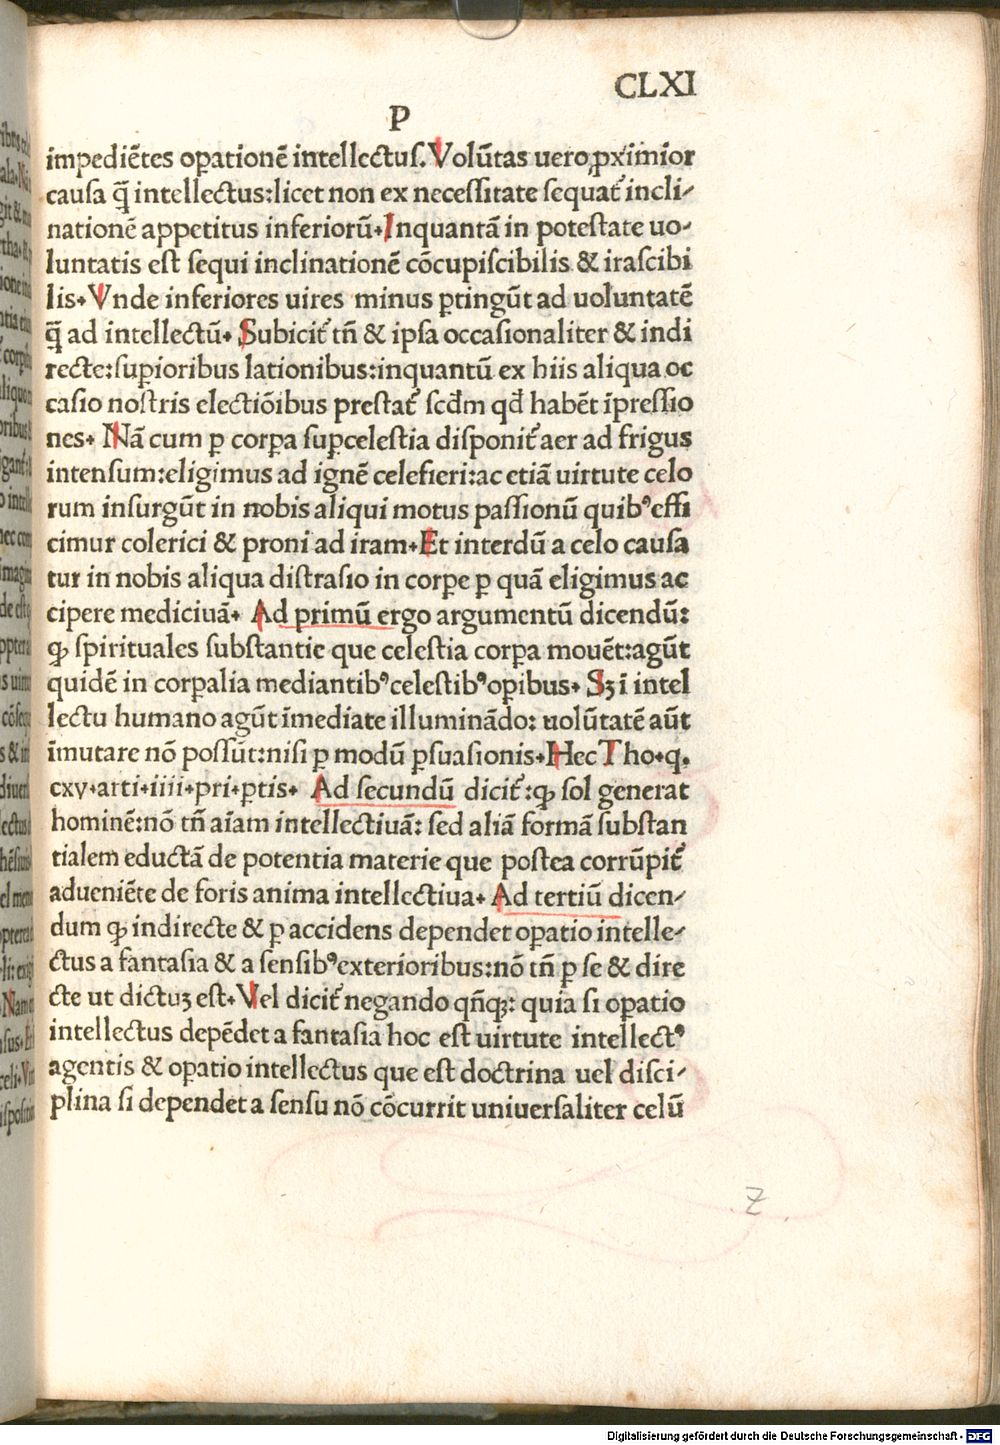 CLXI
P
impediētes oꝑationē intellectuſ. Volūtas uero ꝓximior
cauſa q̄ intellectus: licet non ex neceſſitate ſequat᷑ incli-
nationē appetitus inferiorū. Inquantā in poteſtate uo-
luntatis eſt ſequi inclinationē cōcupiſcibilis & iraſcibi
lis. Vnde inferiores uires minus ꝑtingūt ad uoluntatē
q̄ ad intellectū. Subicit᷑ tn̄ & ipſa occaſionaliter & indi
recte: ſuꝑioribus lationibus: inquantū ex hiis aliqua oc
caſio noſtris electiōibus preſtat᷑ ſcđm qđ habēt īpreſſio
nes. Nā cum ꝑ corꝑa ſuꝑceleſtia diſponit᷑ aer ad frigus
intenſum: eligimus ad ignē celefieri: ac etiā uirtute celo
rum inſurgūt in nobis aliqui motus paſſionū quibꝰ effi
cimur colerici & proni ad iram. Et interdū a celo cauſa
tur in nobis aliqua diſtraſio in corꝑe ꝑ quā eligimus ac
cipere mediciuā. Ad primū ergo argumentū dicendū:
ꝙ ſpirituales ſubſtantie que celeſtia corꝑa mouēt: agūt
quidē in corꝑalia mediantibꝰ celeſtibꝰ oꝑibus. Sꝫ ī intel
lectu humano agūt īmediate illuminādo: uolūtatē aūt
īmutare nō poſſūt: niſi ꝑ modū ꝑſuaſionis. Hec Tho. q.
cxv. arti. iiii. pri. ꝑtis. Ad ſecundū dicit᷑: ꝙ ſol generat
hominē: nō tn̄ aīam intellectiuā: ſed aliā formā ſubſtan
tialem eductā de potentia materie que poſtea corrūpit᷑
adueniēte de foris anima intellectiua. Ad tertiū dicen-
dum ꝙ indirecte & ꝑ accidens dependet oꝑatio intelle-
ctus a fantaſia & a ſenſibꝰ exterioribus: nō tn̄ ꝑ ſe & dire
cte ut dictuꝫ eſt. Vel dicit᷑ negando qn̄qꝫ: quia ſi oꝑatio
intellectus depēdet a fantaſia hoc eſt uirtute intellectꝰ
agentis & oꝑatio intellectus que eſt doctrina uel diſci-
plina ſi dependet a ſenſu nō cōcurrit uniuerſaliter celū
z
Digitalisierung gefördert durch die Deutsche Forschungsgemeinschaft - DFG